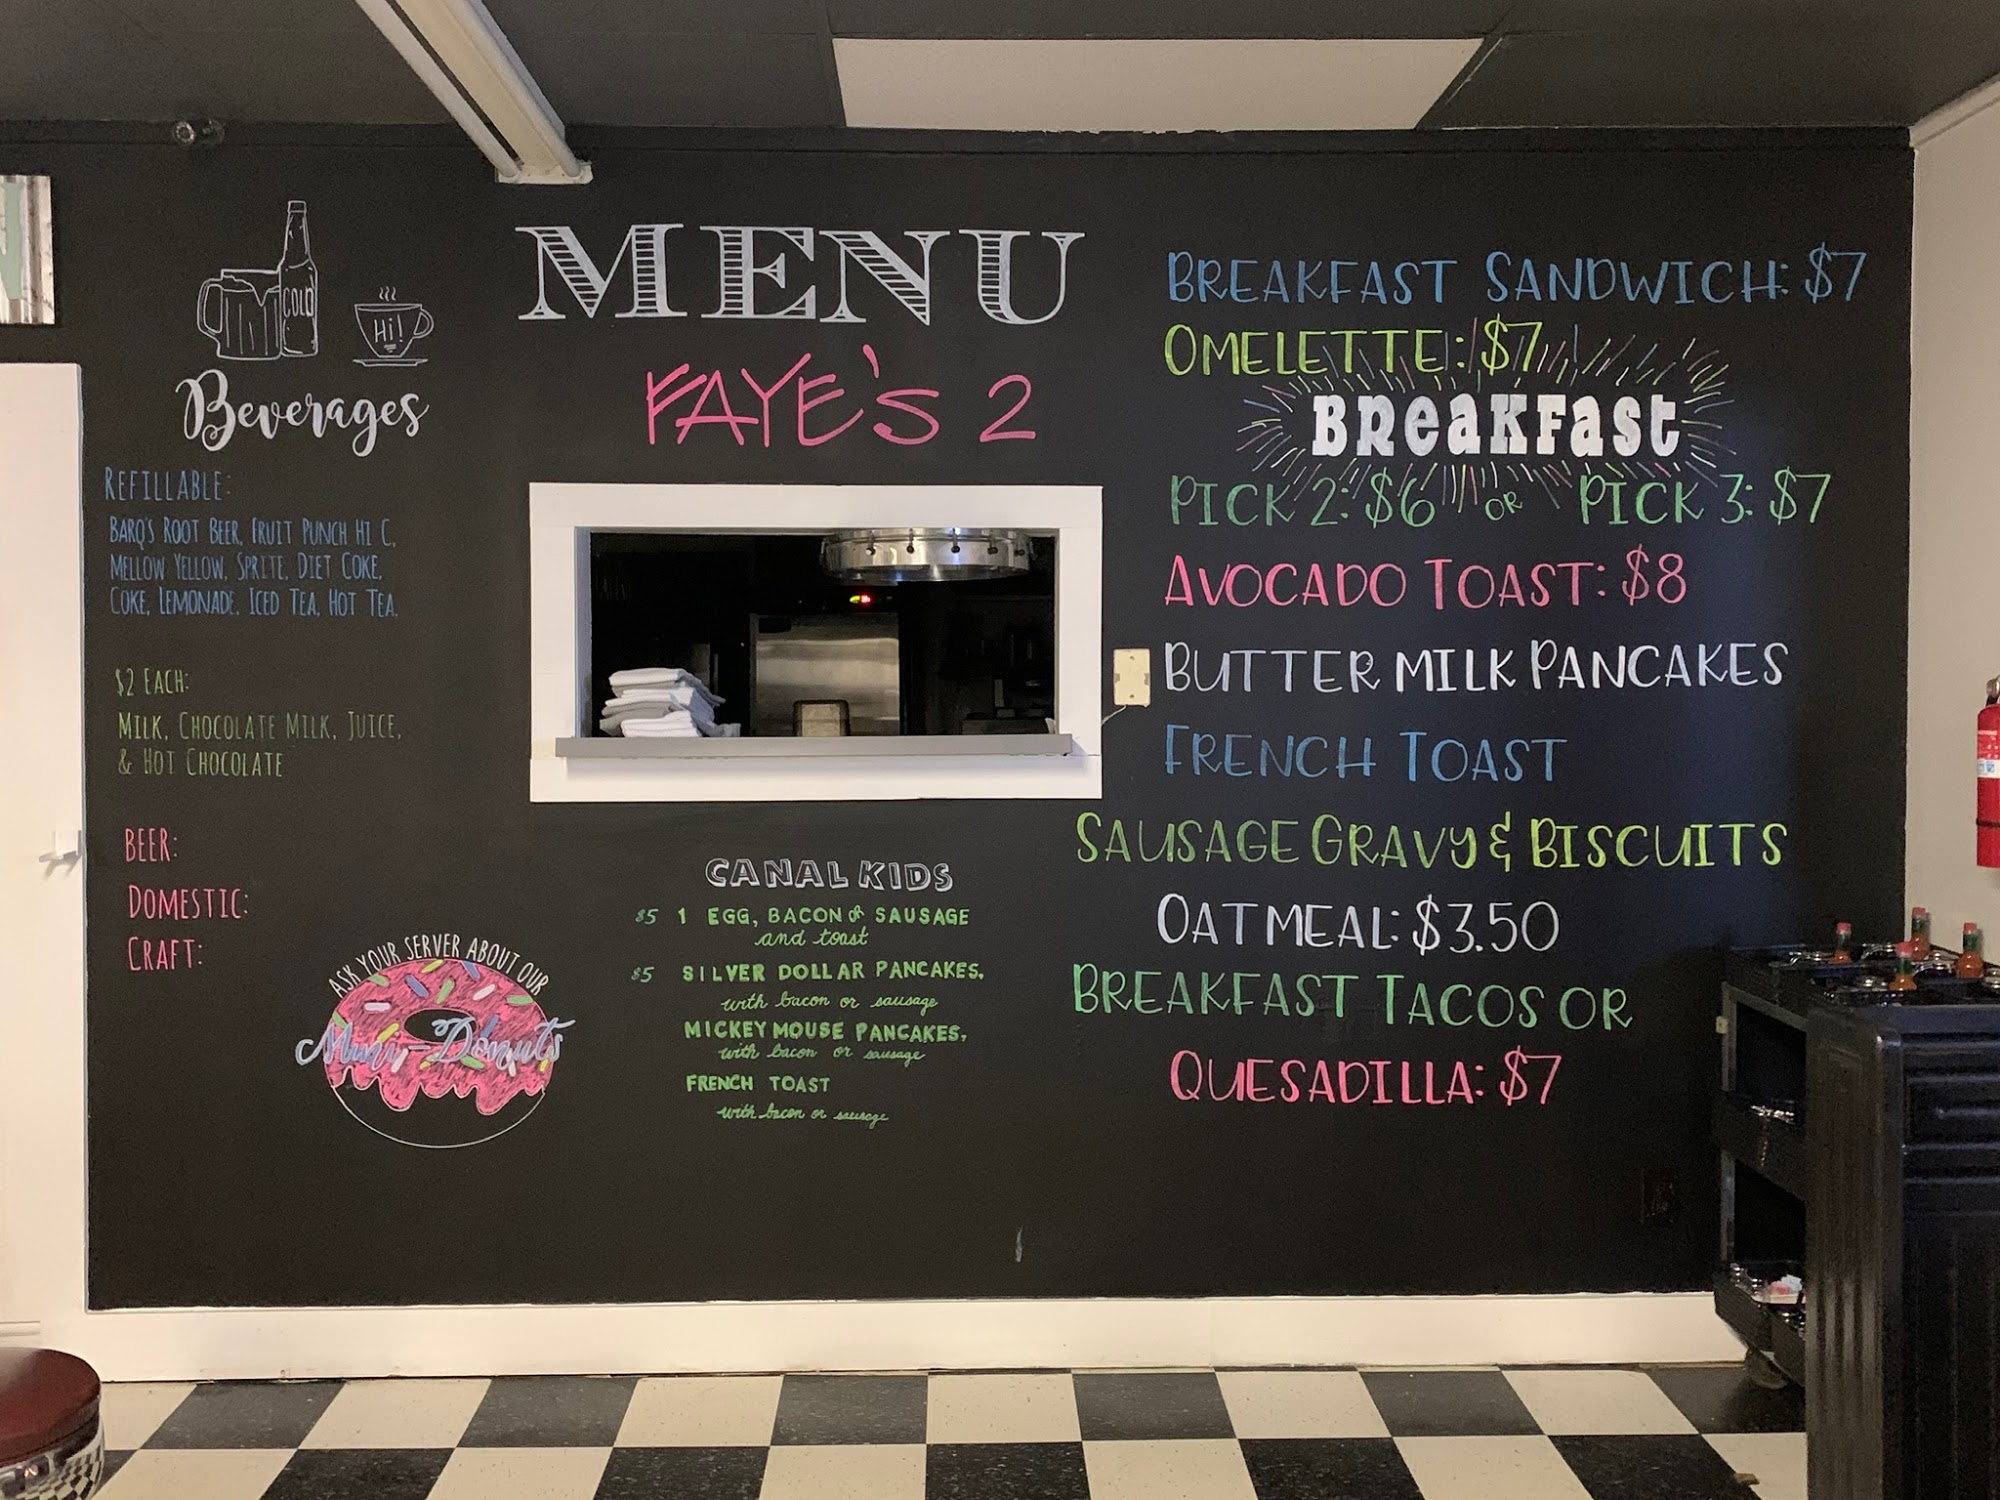 MENU
FAYE'S 2
COLD
Hi!
Beverages
REFILLABLE:
BARQ'S ROOT BEER, FRUIT PUNCH HI C,
MELLOW YELLOW, SPRITE, DIET COKE,
COKE, LEMONADE, ICED TEA, HOT TEA.
$2 EACH:
MILK, CHOCOLATE MILK, JUICE,
& HOT CHOCOLATE
BEER:
DOMESTIC:
CRAFT:
ASK YOUR SERVER ABOUT OUR
Mini-Donuts
CANAL KIDS
$5 1 EGG, BACON or SAUSAGE
and toast
$5 SILVER DOLLAR PANCAKES,
with bacon or sausage
MICKEY MOUSE PANCAKES,
with bacon or sausage
FRENCH TOAST
with bacon or sausage
BREAKFAST SANDWICH: $7
OMELETTE: $7
BREAKFAST
PICK 2: $6 OR PICK 3: $7
AVOCADO TOAST: $8
BUTTER MILK PANCAKES
FRENCH TOAST
SAUSAGE GRAVY & BISCUITS
OATMEAL: $3.50
BREAKFAST TACOS OR
QUESADILLA: $7